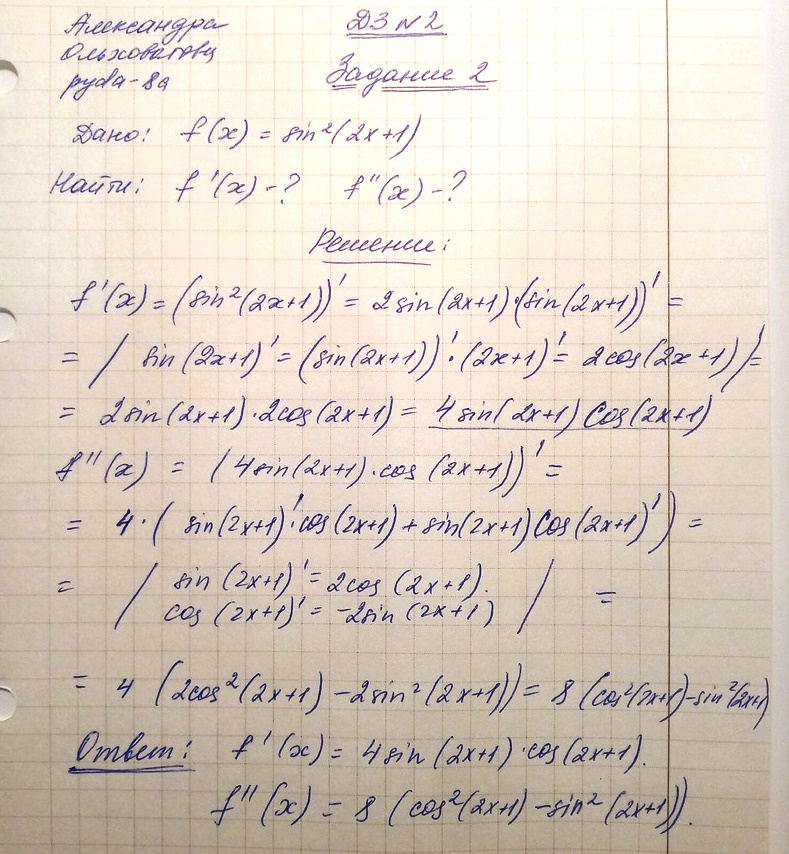 Александра
ДЗ №2
руda-8a
Задание 2
Дано: f(x) = sin²(2x+1)
Найти: f'(x) - ? f''(x) - ?
Решение:
f'(x) = (sin²(2x+1))' = 2sin(2x+1)·(sin(2x+1))' =
= / sin(2x+1)' = (sin(2x+1))'·(2x+1)' = 2cos(2x+1)/' =
= 2sin(2x+1)·2cos(2x+1) = 4sin(2x+1) cos(2x+1)
f''(x) = (4sin(2x+1)·cos(2x+1))' =
= 4·(sin(2x+1)'·cos(2x+1) + sin(2x+1)cos(2x+1)') =
= / sin(2x+1)' = 2cos(2x+1).
cos(2x+1)' = -2sin(2x+1) / =
= 4 (2cos²(2x+1) - 2sin²(2x+1)) = 8 (cos²(2x+1) - sin²(2x+1)
Ответ: f'(x) = 4sin(2x+1)·cos(2x+1).
f''(x) = 8 (cos²(2x+1) - sin²(2x+1)).